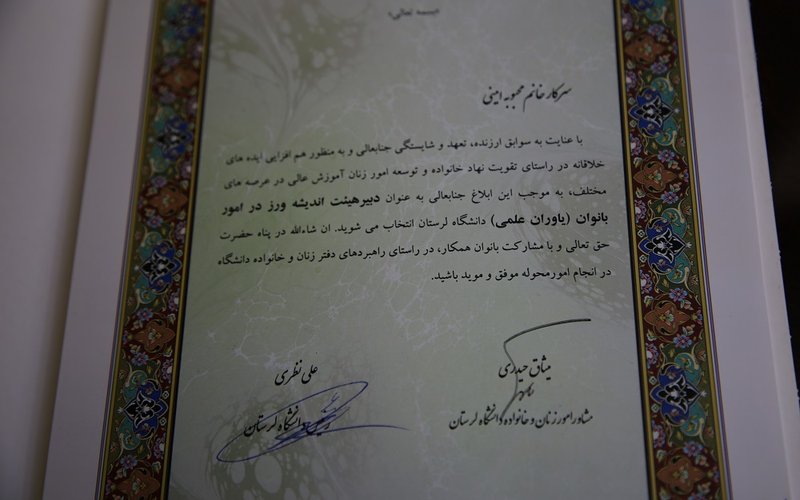 بسمه تعالی،
سرکار خانم محبوبه امینی
با عنایت به سوابق ارزنده، تعهد و شایستگی جنابعالی و به منظور هم افزایی ایده های
خلاقانه در راستای تقویت نهاد خانواده و توسعه امور زنان آموزش عالی در عرصه های
مختلف، به موجب این ابلاغ جنابعالی به عنوان دبیرهیئت اندیشه ورز در امور
بانوان (یاوران علمی) دانشگاه لرستان انتخاب می شوید. ان شاءالله در پناه حضرت
حق تعالی و با مشارکت بانوان همکار، در راستای راهبردهای دفتر زنان و خانواده دانشگاه
در انجام امورمحوله موفق و موید باشید.
میثاق حیدری
مشاور امور زنان و خانواده دانشگاه لرستان
علی نظری
رئیس دانشگاه لرستان